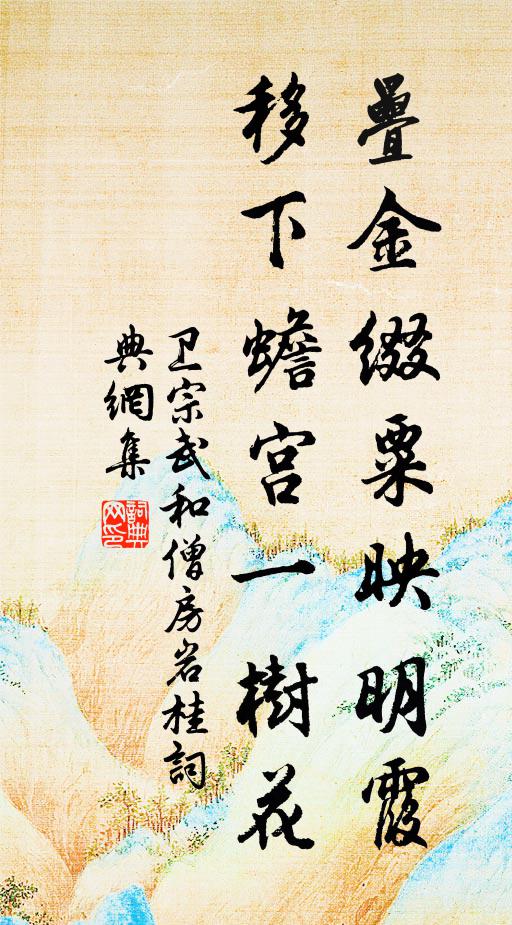 疊金綴粟映明霞
移下蟾宮一樹花
卫宗武和僧房岩桂詞
典網集
詞典网印